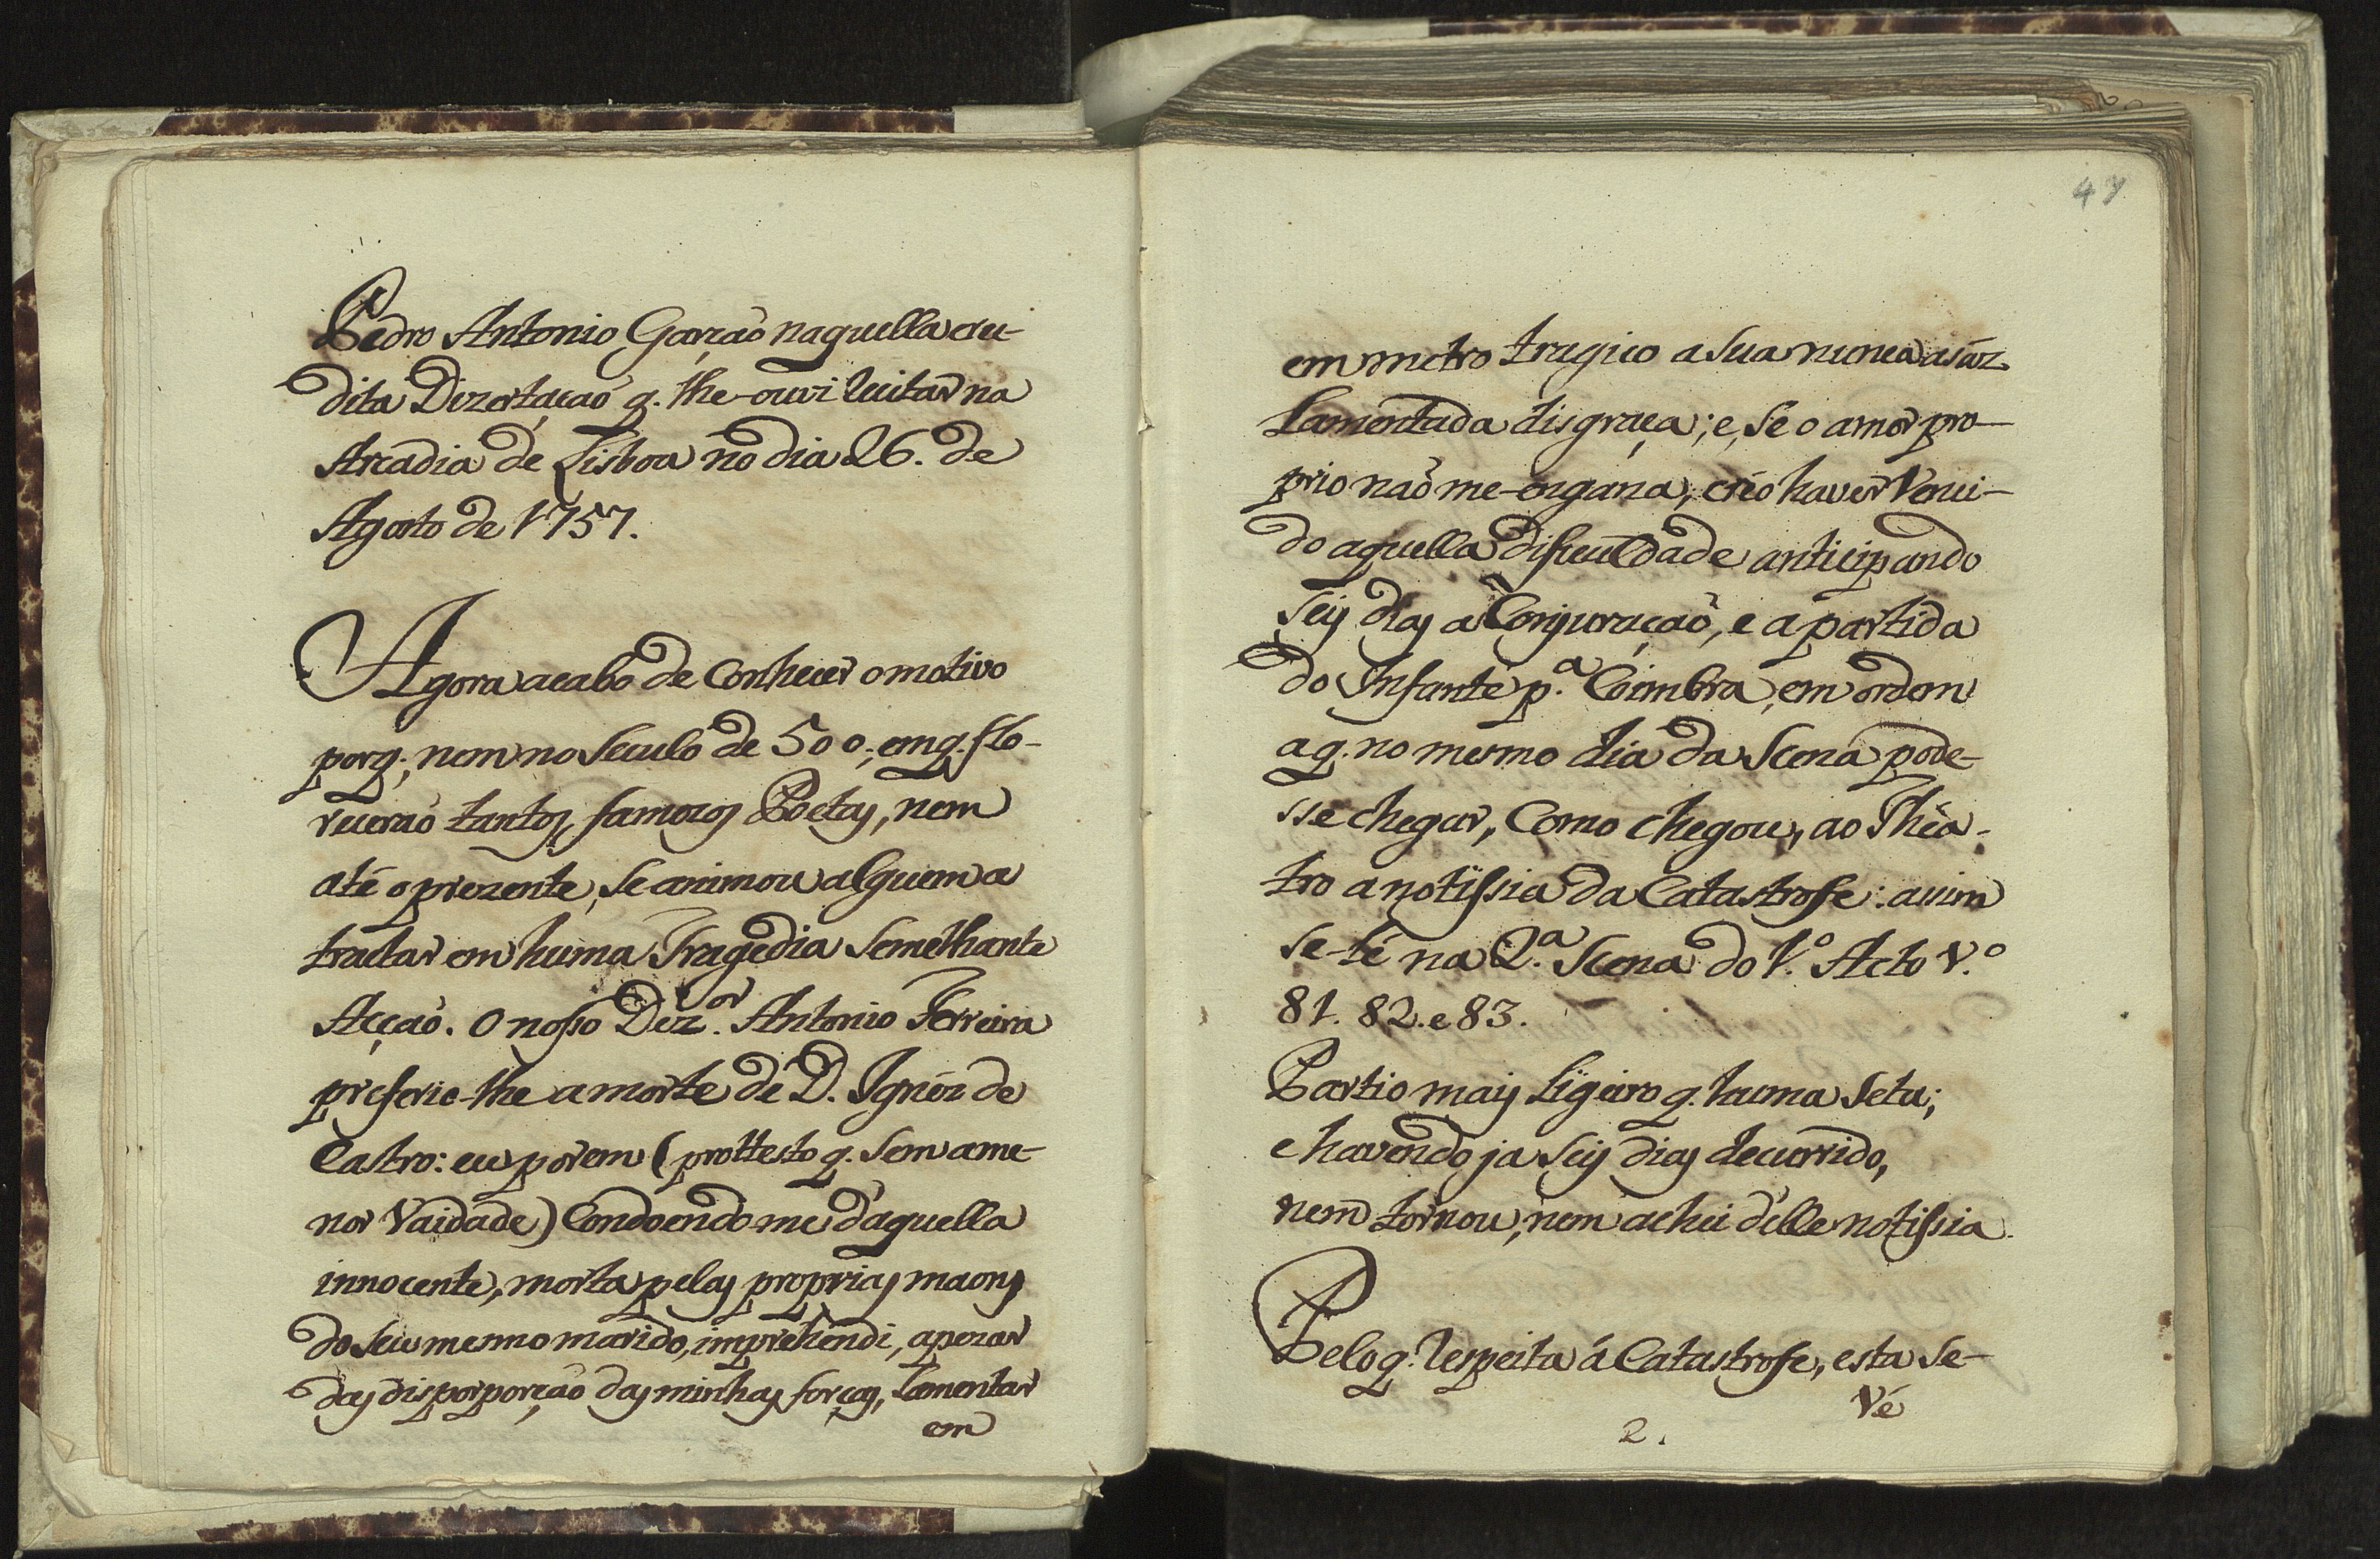 Pedro Antonio Garzaõ naquella eru-
dita Dizertaçaõ q. lhe-ouvi recitar na
Arcadia de Lisboa no dia 26. de
Agosto de 1757.
Agora acabo de conhecer o motivo
porq;, nem no Seculo de 500;, em q. flo-
receraõ tantos famozos Poetas, nem
até o prezente, se animou alguem a
tractar em huma Tragedia semelhante
Acçaõ. O nosso Dez.or Antonio Ferreira
preferio-lhe a morte de D. Ignéz de
Castro: eu porem (prottesto q. sem a me-
nor Vaidade) Condoendo-me d'aquella
innocente, morta pelas proprias maons
do seu mesmo marido, imprehendi, apezar
das disporporção das minhas forças, Lamentar
em
47
em metro tragico a sua nunca asáz
Lamentada disgraça; e, se o amor pro-
prio naõ me-engana, créo haver Venci-
do aquella dificuldade anticipando
seis dias a Conjuraçaõ, e a partida
do Infante p.a Coimbra, em ordem
a q. no mesmo dia da Scena pode-
sse chegar, Como chegou, ao Théa-
tro a notissia da Catastrofe: assim
se-lé na 2.a Scena do 1.o Acto V.o
81. 82. e 83.
Partio mais Ligeiro q. huma Seta;
e havendo ja seis dias decurrido,
nem tornou, nem achei d'elle notissia.
Pelo q. respeita á Catastrofe, esta se-
Vé
2.